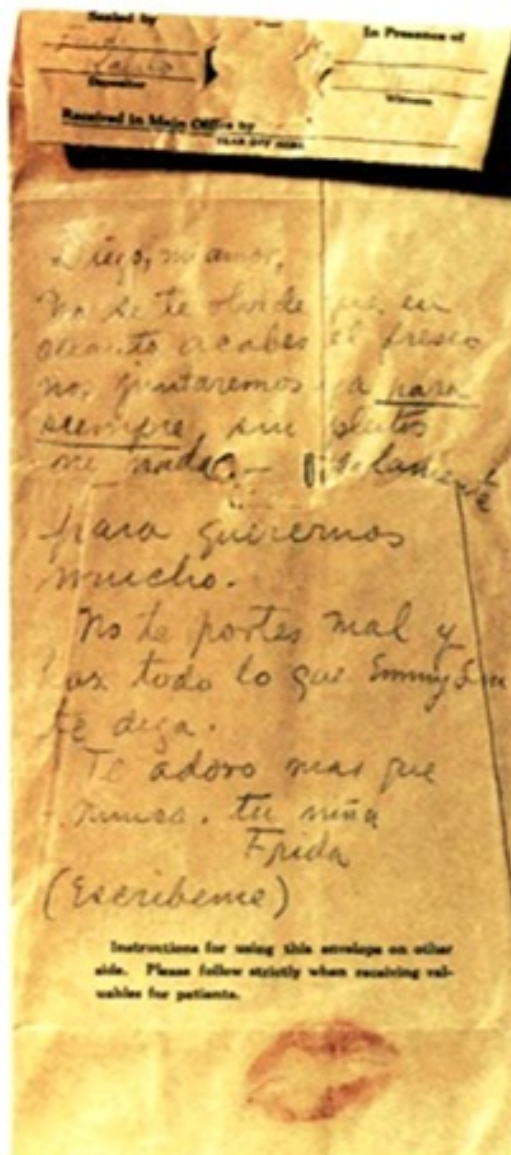 Sealed by
In Presence of
Depositor
Witness
Received in Main Office by
Diego, mi amor,
No se te olvide que en
cuanto acabes el fresco
nos juntaremos ya para
siempre, sin pleitos
ni nada.- Solamente
para querernos
mucho.
No te portes mal y
haz todo lo que Emmy Lou
te diga.
Te adoro mas que
nunca. tu niña
Frida
(Escribeme)
Instructions for using this envelope on other
side. Please follow strictly when receiving val-
uables for patients.